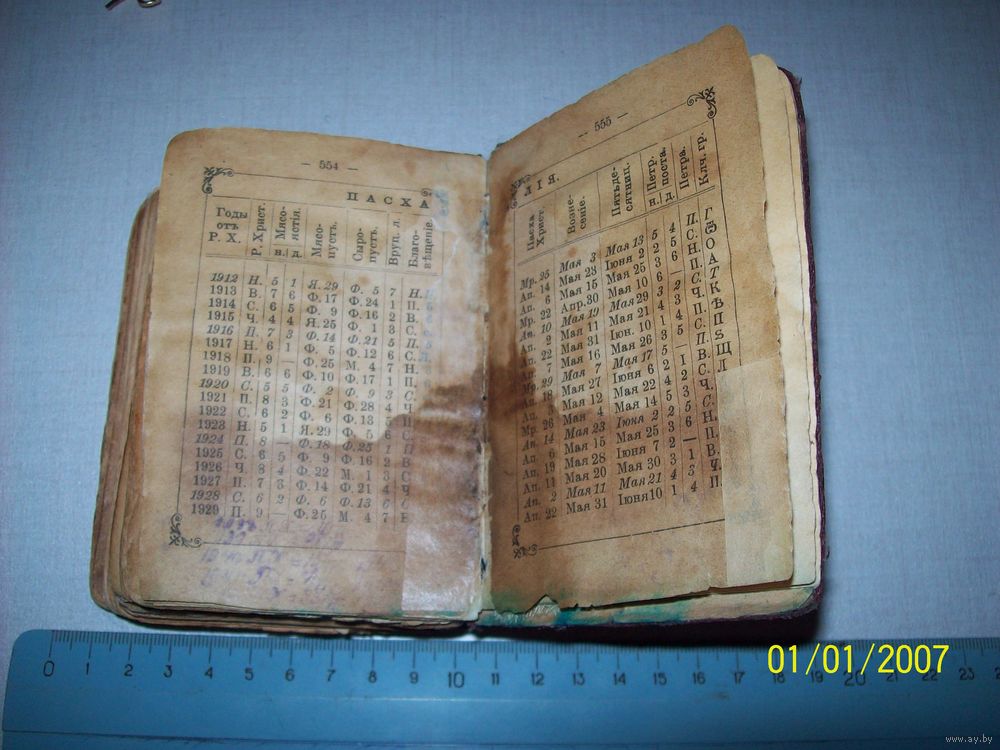 — 554 —
ПАСХА
Годы отъ Р. Х. Р. Христ. Мясоястія. н. д. Мясопустъ. Сыропустъ. Вруц. л. Благовѣщеніе.
1912 Н. 5 1 Я. 29 Ф. 5 7
1913 В. 7 6 Ф. 17 Ф. 24 1 П.
1914 С. 6 5 Ф. 9 Ф. 16 2 В.
1915 Ч. 4 4 Я. 25 Ф. 1 3 С.
1916 П. 7 3 Ф. 14 Ф. 21 5 П.
1917 Н. 6 1 Ф. 5 Ф. 12 6 С.
1918 П. 9 — Ф. 25 М. 4 7 Н.
1919 В. 6 6 Ф. 10 Ф. 17 1 П.
1920 С. 5 5 Ф. 2 Ф. 9 3 С.
1921 П. 8 3 Ф. 21 Ф. 28 4 П.
1922 С. 6 2 Ф. 6 Ф. 13 5 С.
1923 Н. 5 1 Я. 29 Ф. 5 6
1924 П. 8 — Ф. 18 Ф. 25 1 П.
1925 С. 6 5 Ф. 9 Ф. 16 2 В.
1926 Ч. 8 4 Ф. 22 М. 1 3 Ч.
1927 П. 7 3 Ф. 14 Ф. 21 4 С.
1928 С. 6 2 Ф. 6 Ф. 13 6 С.
1929 П. 9 — Ф. 25 М. 4 7
— 555 —
ЛІЯ.
Пасха Христ. Вознесеніе. Пятьдесятниц. Петр. поста. н. д. Петра. Клч. гр.
Мр. 25 Мая 3 Мая 13 5 4 П.
Ап. 14 Мая 23 Іюня 2 2 5 С.
Ап. 6 Мая 15 Мая 25 3 6 Н. О
Мр. 22 Апр. 30 П. А
Ап. 10 Мая 19 Мая 29 3 2 С. Т
Ап. 2 Мая 11 Мая 21 4 3 Ч. К
Ап. 22 Мая 31 Іюн. 10 1 4 П. Ѣ
Ап. 7 Мая 16 Мая 26 3 5 С. П
Мр. 29 Мая 7 Мая 17 5 — П. Ѕ
Ап. 18 Мая 27 Іюня 6 2 1 В. Щ
Ап. 3 Мая 12 Мая 22 4 2 С. Л
Мр. 26 Мая 4 Мая 14 5 3 Ч.
Ап. 14 Мая 23 Іюня 2 2 5 С.
Ап. 6 Мая 15 Мая 25 3 6 Н.
Ап. 19 Мая 28 Іюня 7 2 — П.
Ап. 11 Мая 20 Мая 30 3 1 В.
Ап. 2 Мая 11 Мая 21 4 3 Ч.
Ап. 22 Мая 31 Іюня 10 1 4 П.
0 1 2 3 4 5 6 7 8 9 10 11 12 13 14 15 16 17 18 19 20 21 22 23
01/01/2007
www.ay.by